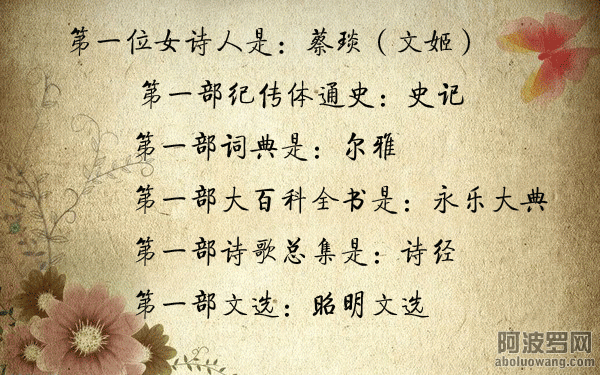 第一位女诗人是：蔡琰（文姬）
第一部纪传体通史：史记
第一部词典是：尔雅
第一部大百科全书是：永乐大典
第一部诗歌总集是：诗经
第一部文选：昭明文选
阿波罗网
aboluowang.com